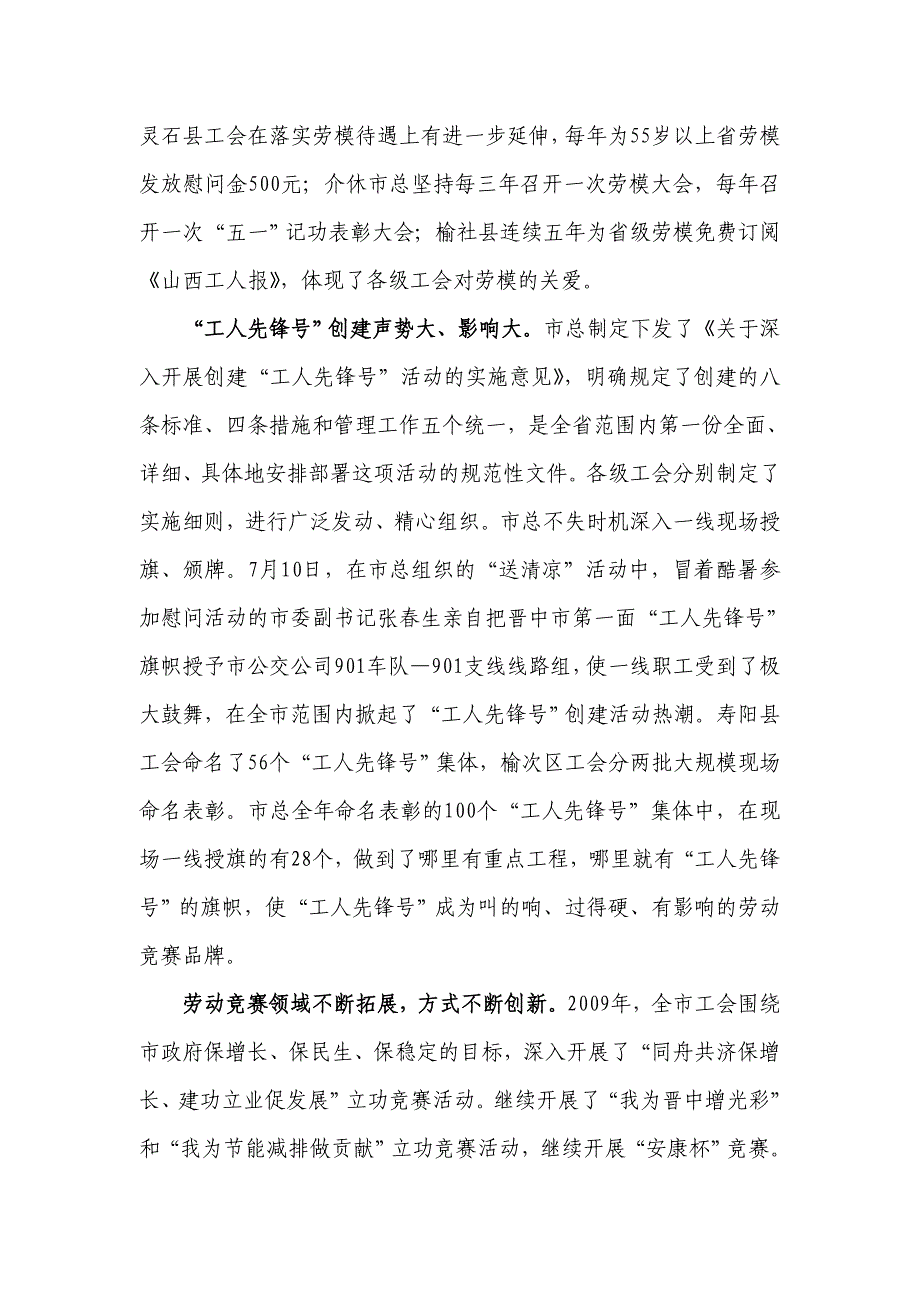 灵石县工会在落实劳模待遇上有进一步延伸，每年为55岁以上省劳模
发放慰问金500元；介休市总坚持每三年召开一次劳模大会，每年召
开一次“五一”记功表彰大会；榆社县连续五年为省级劳模免费订阅
《山西工人报》，体现了各级工会对劳模的关爱。
“工人先锋号”创建声势大、影响大。市总制定下发了《关于深
入开展创建“工人先锋号”活动的实施意见》，明确规定了创建的八
条标准、四条措施和管理工作五个统一，是全省范围内第一份全面、
详细、具体地安排部署这项活动的规范性文件。各级工会分别制定了
实施细则，进行广泛发动、精心组织。市总不失时机深入一线现场授
旗、颁牌。7月10日，在市总组织的“送清凉”活动中，冒着酷暑参
加慰问活动的市委副书记张春生亲自把晋中市第一面“工人先锋号”
旗帜授予市公交公司901车队—901支线线路组，使一线职工受到了极
大鼓舞，在全市范围内掀起了“工人先锋号”创建活动热潮。寿阳县
工会命名了56个“工人先锋号”集体，榆次区工会分两批大规模现场
命名表彰。市总全年命名表彰的100个“工人先锋号”集体中，在现
场一线授旗的有28个，做到了哪里有重点工程，哪里就有“工人先锋
号”的旗帜，使“工人先锋号”成为叫的响、过得硬、有影响的劳动
竞赛品牌。
劳动竞赛领域不断拓展，方式不断创新。2009年，全市工会围绕
市政府保增长、保民生、保稳定的目标，深入开展了“同舟共济保增
长、建功立业促发展”立功竞赛活动。继续开展了“我为晋中增光彩”
和“我为节能减排做贡献”立功竞赛活动，继续开展“安康杯”竞赛。